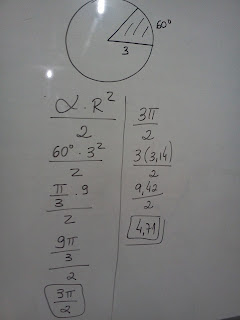 60°
3
α · R²
2
60° · 3²
2
π · 9
3
2
9π
3
2
3π
2
3π
2
3(3,14)
2
9,42
2
4,71